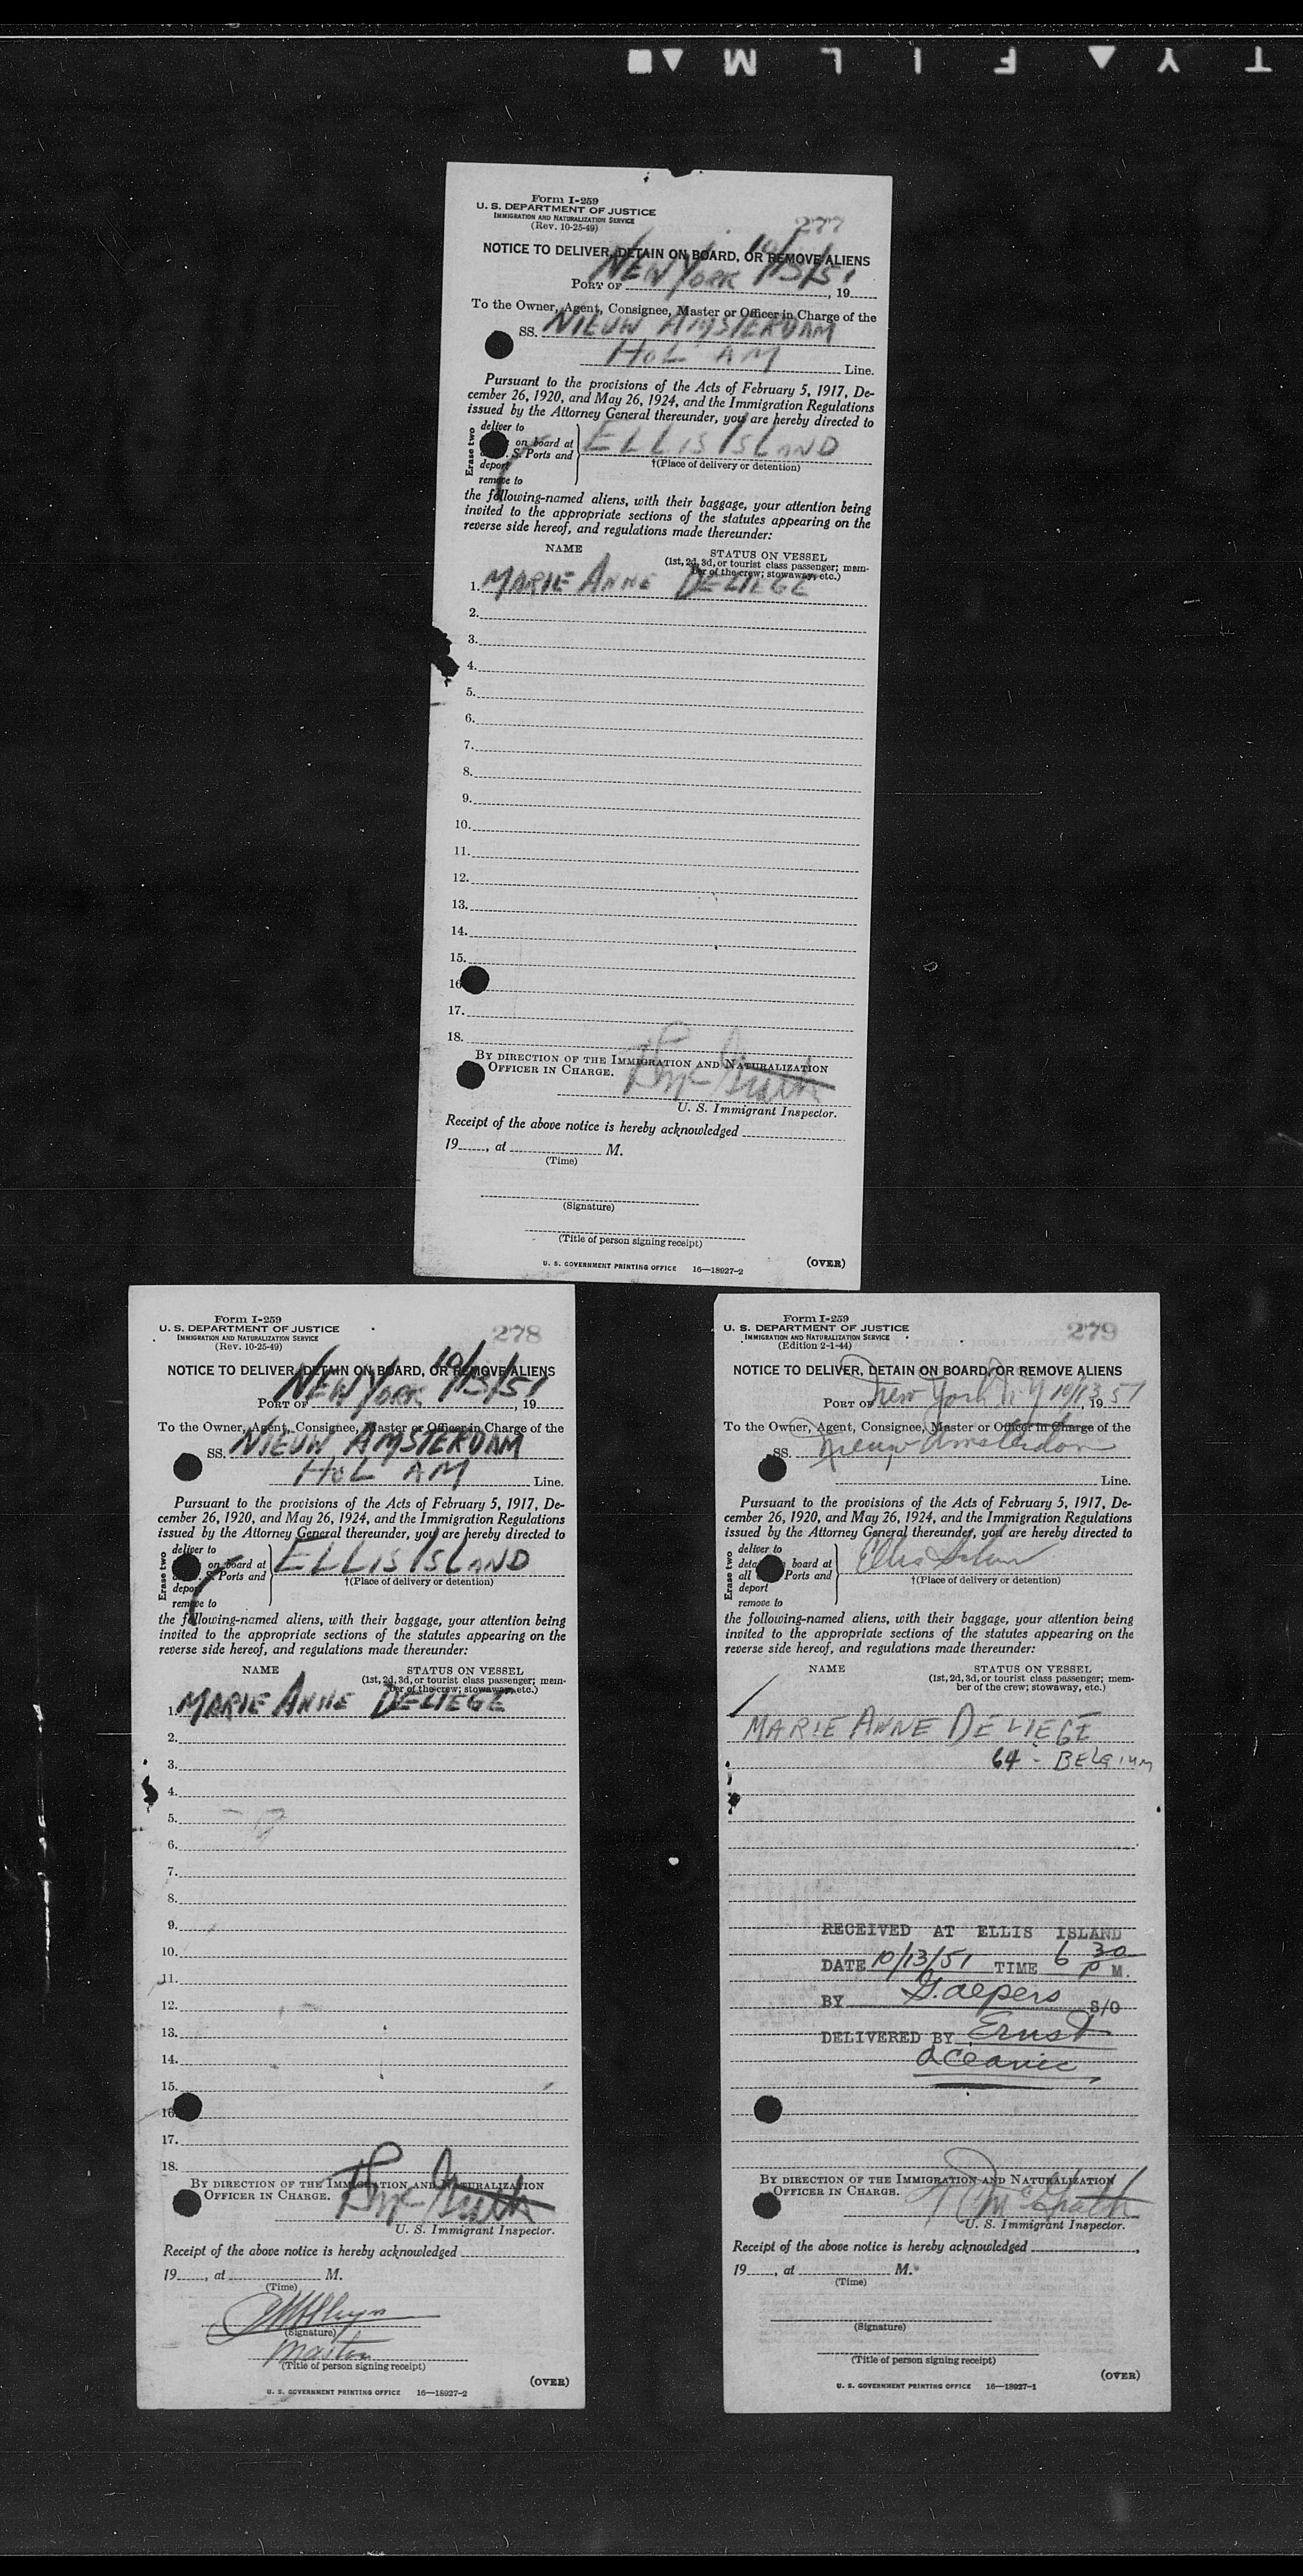 T Y ▲ F I L M
Form I-259
U. S. DEPARTMENT OF JUSTICE
IMMIGRATION AND NATURALIZATION SERVICE
(Rev. 10-25-49)
277
NOTICE TO DELIVER, DETAIN ON BOARD, OR REMOVE ALIENS
PORT OF NEW YORK 10/13/51, 19
To the Owner, Agent, Consignee, Master or Officer in Charge of the
SS. NIEUW AMSTERDAM
HOL AM Line.
Pursuant to the provisions of the Acts of February 5, 1917, De-
cember 26, 1920, and May 26, 1924, and the Immigration Regulations
issued by the Attorney General thereunder, you are hereby directed to
Erase two
deliver to
on board at
S. Ports and
deport
remove to
ELLIS ISLAND
†(Place of delivery or detention)
the following-named aliens, with their baggage, your attention being
invited to the appropriate sections of the statutes appearing on the
reverse side hereof, and regulations made thereunder:
NAME STATUS ON VESSEL
(1st, 2d, 3d, or tourist class passenger; mem-
ber of the crew; stowaway, etc.)
1. MARIE ANNE DELIEGE
2.
3.
4.
5.
6.
7.
8.
9.
10.
11.
12.
13.
14.
15.
16
17.
18.
BY DIRECTION OF THE IMMIGRATION AND NATURALIZATION
OFFICER IN CHARGE.
U. S. Immigrant Inspector.
Receipt of the above notice is hereby acknowledged
19, at M.
(Time)
(Signature)
(Title of person signing receipt)
(OVER)
U. S. GOVERNMENT PRINTING OFFICE 16—18927-2
Form I-259
U. S. DEPARTMENT OF JUSTICE
IMMIGRATION AND NATURALIZATION SERVICE
(Rev. 10-25-49)
278
NOTICE TO DELIVER, DETAIN ON BOARD, OR REMOVE ALIENS
PORT OF NEW YORK 10/13/51, 19
To the Owner, Agent, Consignee, Master or Officer in Charge of the
SS. NIEUW AMSTERDAM
HOL AM Line.
Pursuant to the provisions of the Acts of February 5, 1917, De-
cember 26, 1920, and May 26, 1924, and the Immigration Regulations
issued by the Attorney General thereunder, you are hereby directed to
Erase two
deliver to
on board at
S. Ports and
deport
remove to
ELLIS ISLAND
†(Place of delivery or detention)
the following-named aliens, with their baggage, your attention being
invited to the appropriate sections of the statutes appearing on the
reverse side hereof, and regulations made thereunder:
NAME STATUS ON VESSEL
(1st, 2d, 3d, or tourist class passenger; mem-
ber of the crew; stowaway, etc.)
1. MARIE ANNE DELIEGE
2.
3.
4.
5.
6.
7.
8.
9.
10.
11.
12.
13.
14.
15.
16
17.
18.
BY DIRECTION OF THE IMMIGRATION AND NATURALIZATION
OFFICER IN CHARGE.
U. S. Immigrant Inspector.
Receipt of the above notice is hereby acknowledged
19, at M.
(Time)
(Signature)
Master
(Title of person signing receipt)
(OVER)
U. S. GOVERNMENT PRINTING OFFICE 16—18927-2
Form I-259
U. S. DEPARTMENT OF JUSTICE
IMMIGRATION AND NATURALIZATION SERVICE
(Edition 2-1-44)
279
NOTICE TO DELIVER, DETAIN ON BOARD, OR REMOVE ALIENS
PORT OF New York N Y 10/13, 1951
To the Owner, Agent, Consignee, Master or Officer in Charge of the
SS. Nieuw Amsterdam
Line.
Pursuant to the provisions of the Acts of February 5, 1917, De-
cember 26, 1920, and May 26, 1924, and the Immigration Regulations
issued by the Attorney General thereunder, you are hereby directed to
Erase two
deliver to
board at
all Ports and
deport
remove to
Ellis Island
†(Place of delivery or detention)
the following-named aliens, with their baggage, your attention being
invited to the appropriate sections of the statutes appearing on the
reverse side hereof, and regulations made thereunder:
NAME STATUS ON VESSEL
(1st, 2d, 3d, or tourist class passenger; mem-
ber of the crew; stowaway, etc.)
MARIE ANNE DELIEGE
64 - BELGIUM
RECEIVED AT ELLIS ISLAND
DATE 10/13/51 TIME 6 30 P M.
BY S/O
DELIVERED BY Ernst
Oceanic
BY DIRECTION OF THE IMMIGRATION AND NATURALIZATION
OFFICER IN CHARGE.
McGrath
U. S. Immigrant Inspector.
Receipt of the above notice is hereby acknowledged
19, at M.
(Time)
(Signature)
(Title of person signing receipt)
(OVER)
U. S. GOVERNMENT PRINTING OFFICE 16—18927-1